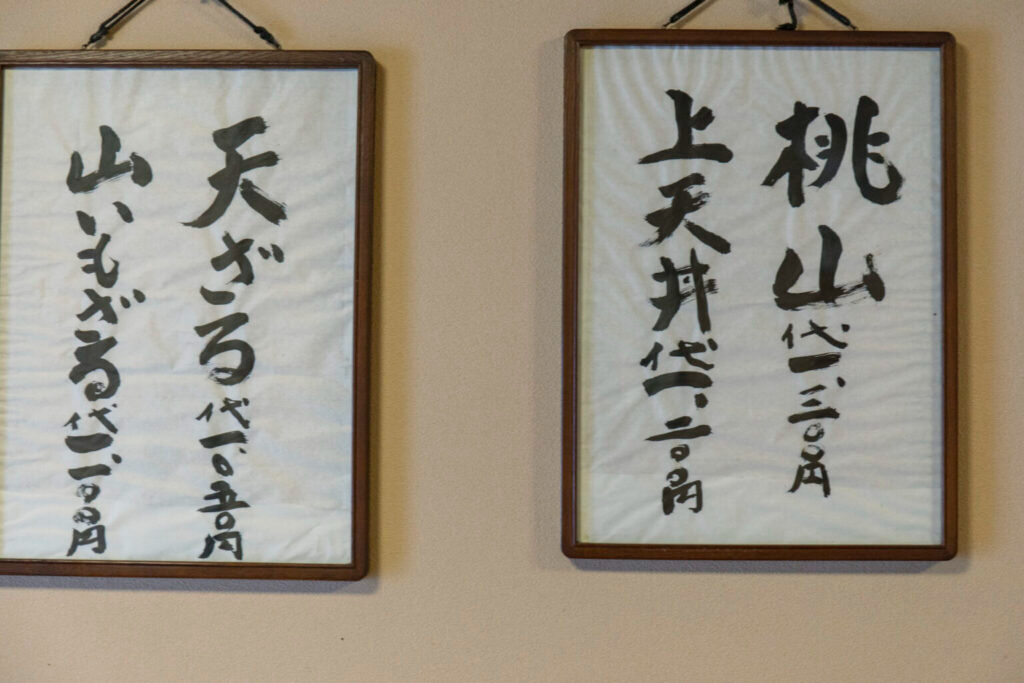 桃山代一、三〇〇円
上天丼代一、二〇〇円
天ざる代一、〇五〇円
山いもざる代一、一〇〇円